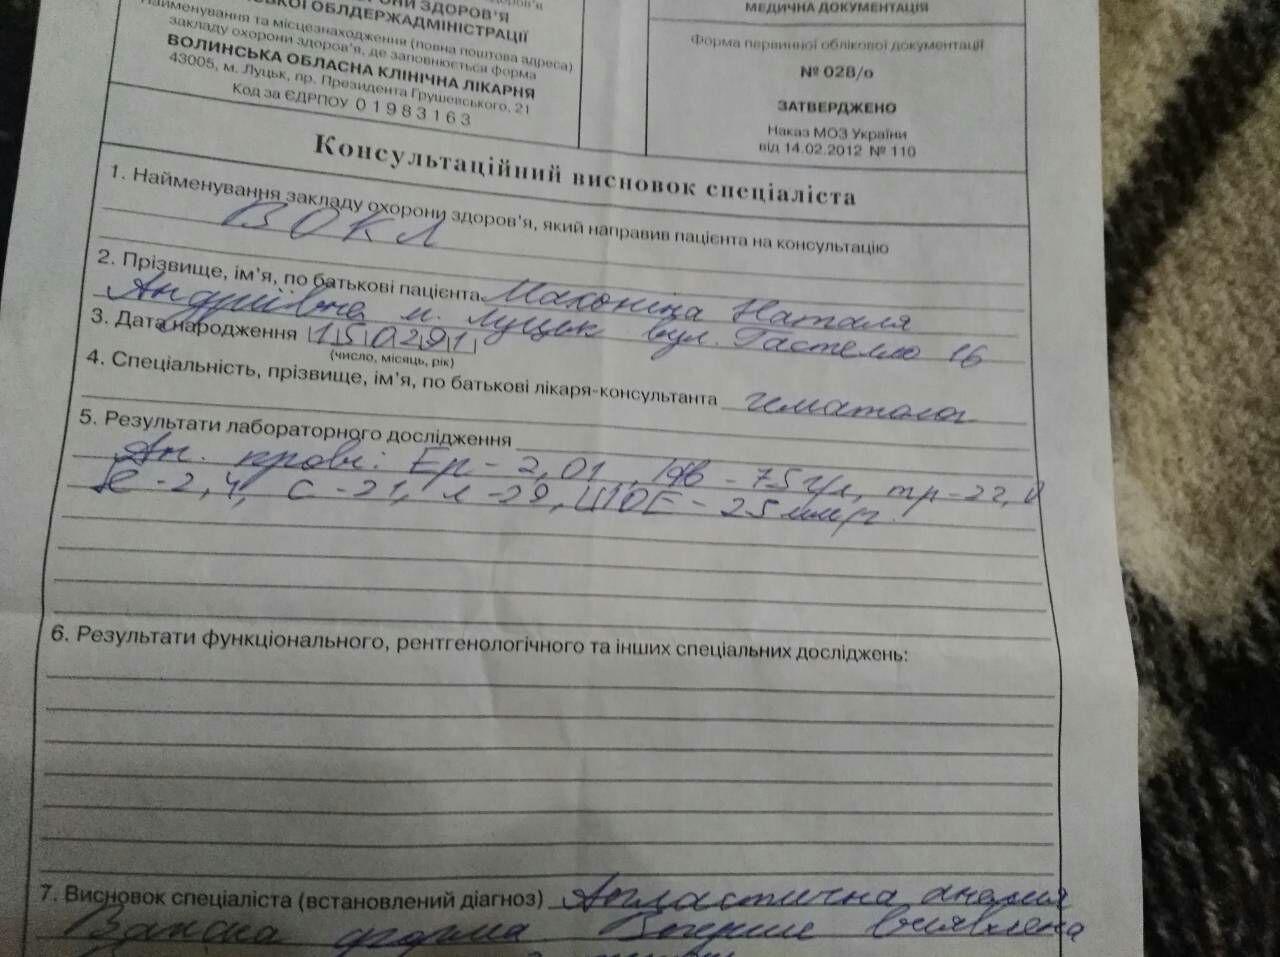 ОХОРОНИ ЗДОРОВ'Я
ОБЛДЕРЖАДМІНІСТРАЦІЇ
Найменування та місцезнаходження (повна поштова адреса)
закладу охорони здоров'я, де заповнюється форма
ВОЛИНСЬКА ОБЛАСНА КЛІНІЧНА ЛІКАРНЯ
43005, м. Луцьк, пр. Президента Грушевського, 21
Код за ЄДРПОУ 0 1 9 8 3 1 6 3
МЕДИЧНА ДОКУМЕНТАЦІЯ
Форма первинної облікової документації
№ 028/о
ЗАТВЕРДЖЕНО
Наказ МОЗ України
від 14.02.2012 № 110
Консультаційний висновок спеціаліста
1. Найменування закладу охорони здоров'я, який направив пацієнта на консультацію
ВОКЛ
2. Прізвище, ім'я, по батькові пацієнта Махоніца Наталя
Андріївна м. Луцьк вул. Гастелло 16
3. Дата народження 150291
(число, місяць, рік)
4. Спеціальність, прізвище, ім'я, по батькові лікаря-консультанта гематолог
5. Результати лабораторного дослідження
Ан. крові: Ер - 2,01, Нв - 75 г/л, тр - 22,0
Le - 2,4, с - 21, л - 29, ШОЕ - 25 мм/г.
6. Результати функціонального, рентгенологічного та інших спеціальних досліджень:
7. Висновок спеціаліста (встановлений діагноз) Апластична анемія
Важка форма Вперше виявлена